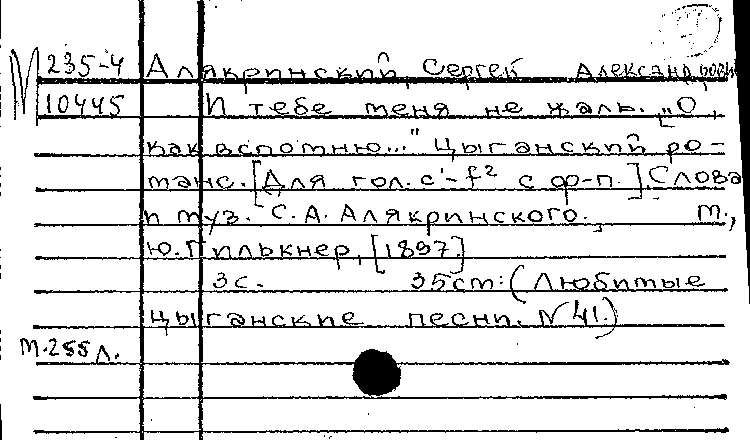 М 235-4 Алякринский, Сергей Александрович
10445 И тебе меня не жаль. ["О,
как вспомню..." Цыганский ро-
манс. [Для гол. c'-f² с ф-п.] Слова
и муз. С. А. Алякринского., М.,
Ю. Гилькнер, [1897]
3с. 35см: (Любимые
цыганские песни. N 41.)
М.255 л.